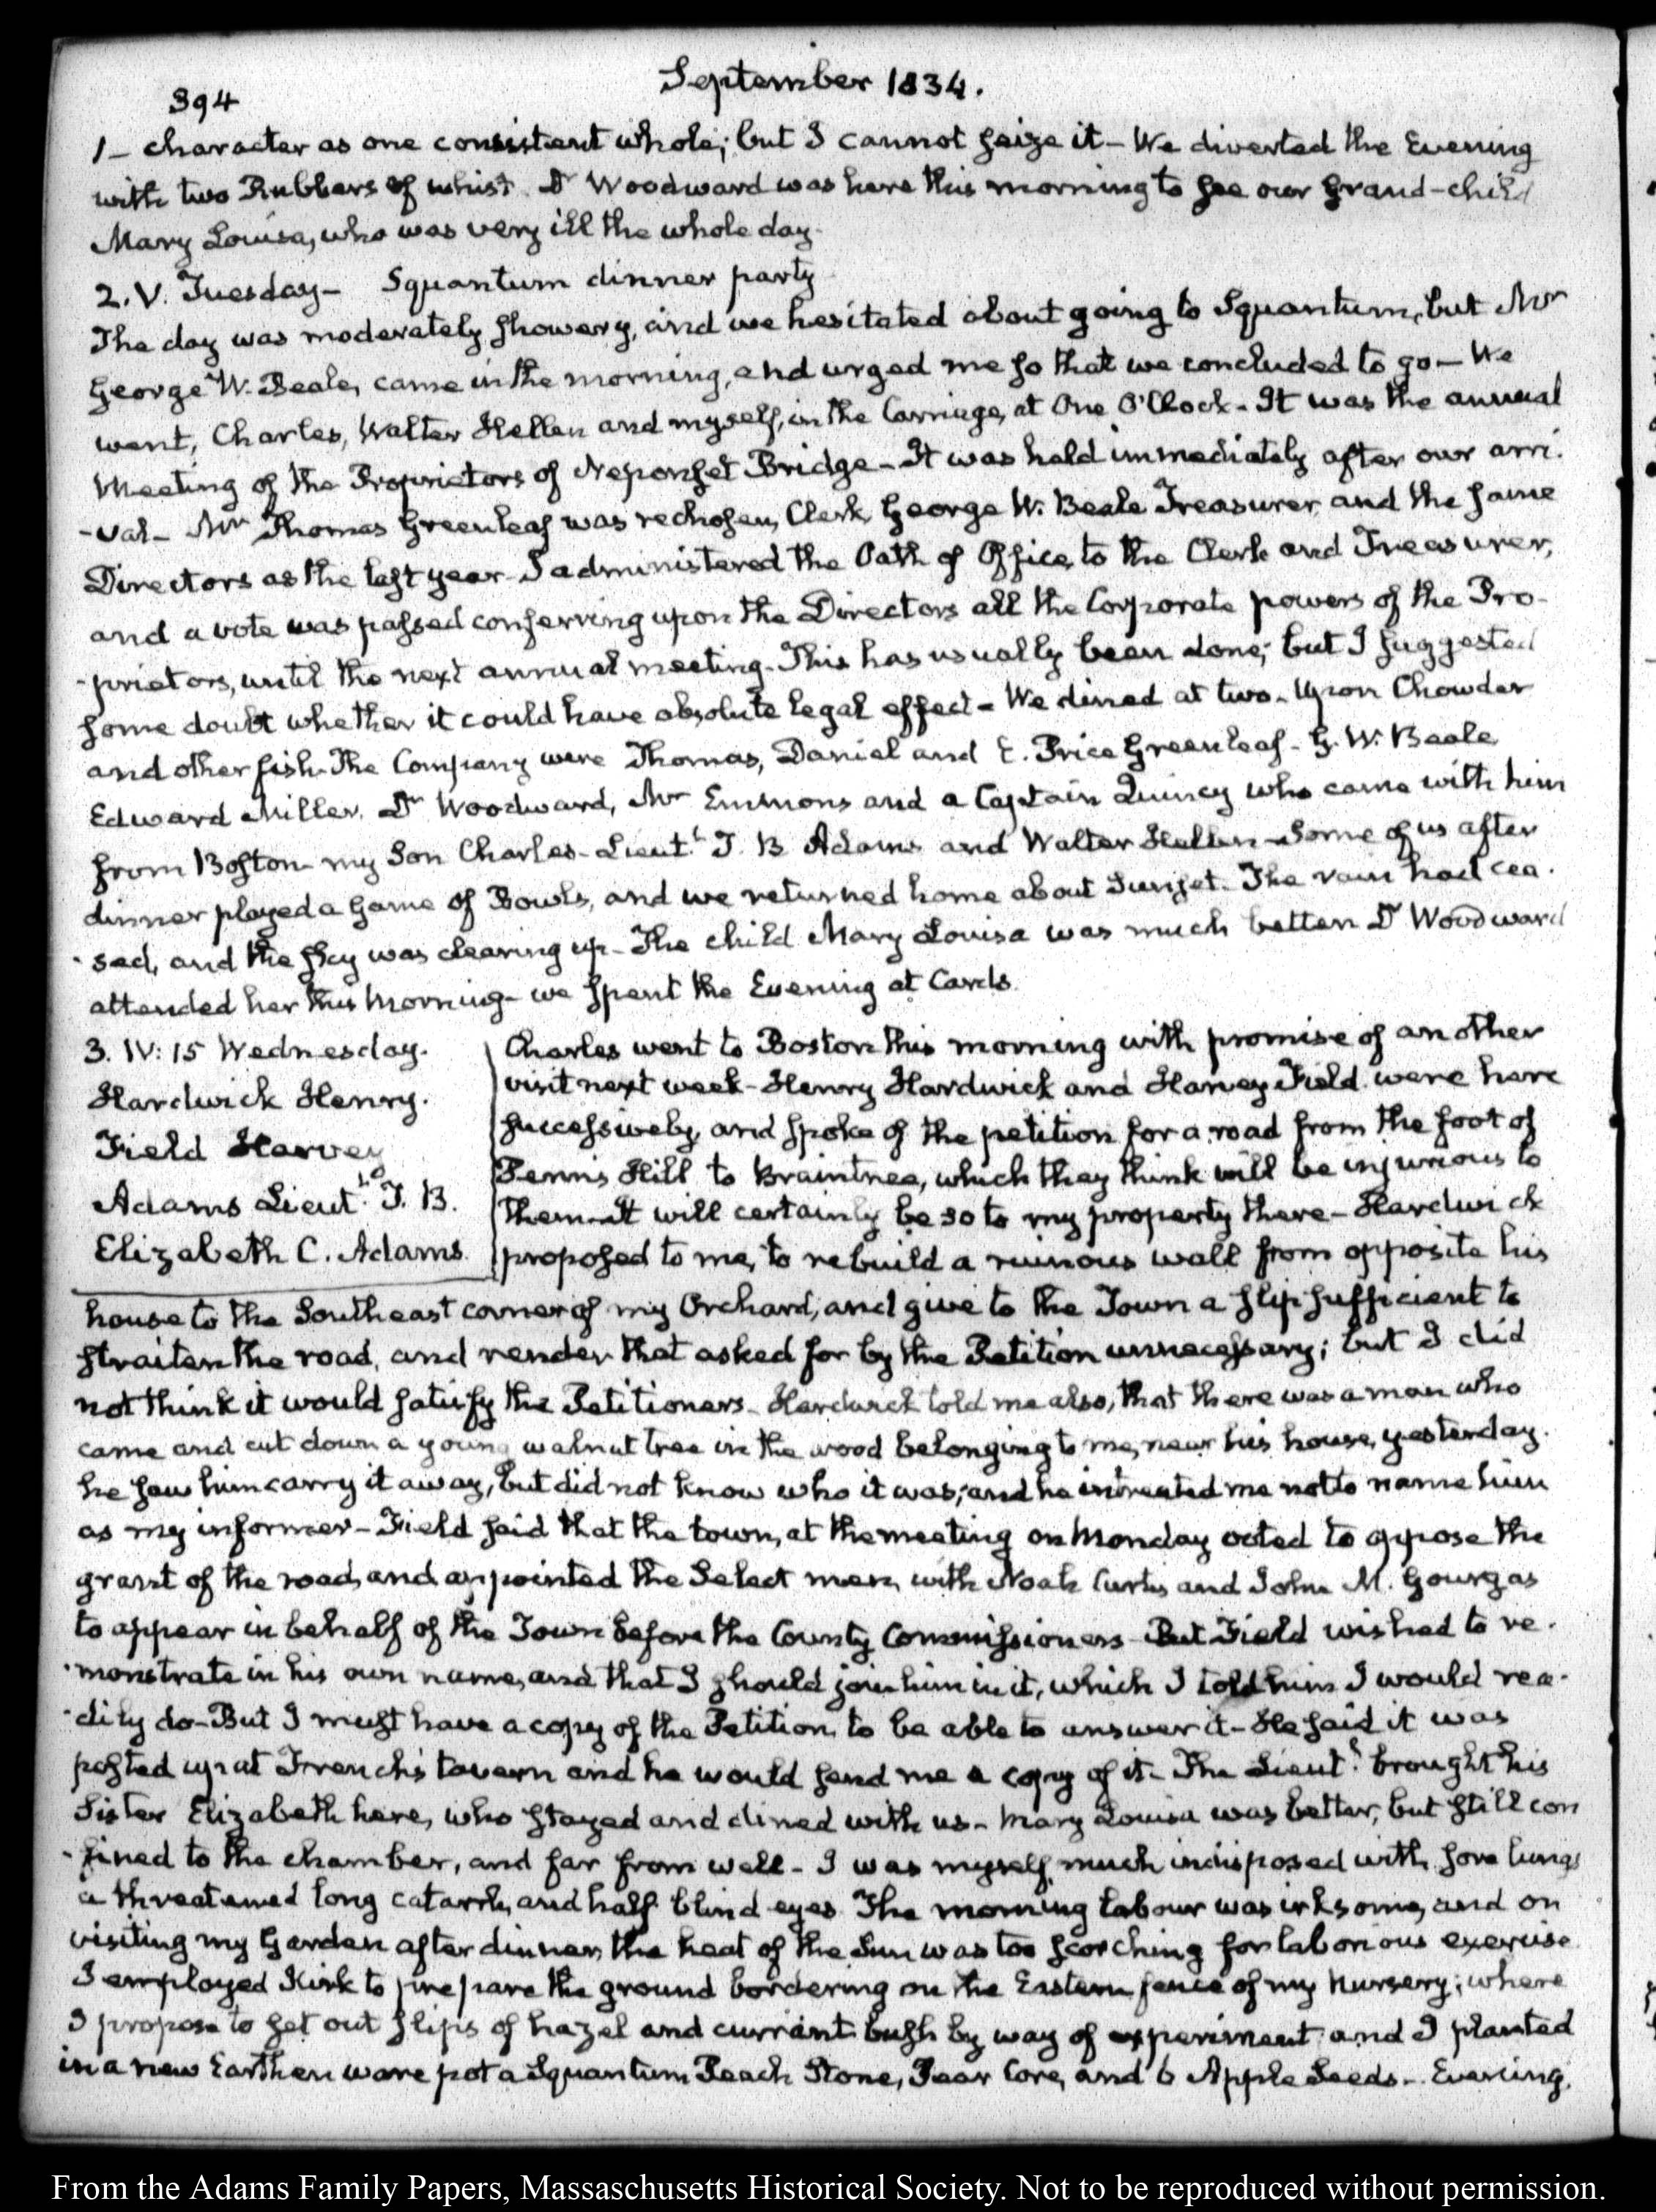 394
September 1834.
1_ character as one consistent whole; but I cannot seize it_ We diverted the Evening
with two Rubbers of whist. Dr Woodward was here this morning to see our Grand-child
Mary Louisa, who was very ill the whole day.
2. V. Tuesday_ Squantum dinner party
The day was moderately showery, and we hesitated about going to Squantum, but Mr
George W. Beale, came in the morning, and urged me so that we concluded to go_ We
went, Charles, Walter Hellen and myself, in the Carriage, at One O'Clock_ It was the annual
Meeting of the Proprietors of Neponset Bridge_ It was held immediately after our arri-
-val_ Mr Thomas Greenleaf was rechosen, Clerk, George W. Beale Treasurer and the same
Directors as the last year_ I administered the Oath of Office, to the Clerk and Treasurer,
and a vote was passed conferring upon the Directors all the Corporate powers of the Pro-
-prietors, until the next annual meeting. This has usually been done; but I suggested
some doubt whether it could have absolute legal effect_ We dined at two_ Upon Chowder
and other fish. The Company were Thomas, Daniel and E. Price Greenleaf_ G. W. Beale
Edward Miller. Dr Woodward, Mr Emmons and a Captain Quincy who came with him
from Boston_ my Son Charles_ Lieutt. T. B Adams and Walter Hellen_ Some of us after
dinner played a Game of Bowls, and we returned home about Sunset. The rain had cea-
-sed, and the sky was clearing up_ The child Mary Louisa was much better. Dr Woodward
attended her this Morning_ we spent the Evening at Cards.
3. IV: 15 Wednesday.
Hardwick Henry.
Field Harvey
Adams Lieutt. T. B.
Elizabeth C. Adams.
Charles went to Boston this morning with promise of another
visit next week_ Henry Hardwick and Harvey Field were here
successively, and spoke of the petition for a road from the foot of
Penn's Hill to Braintree, which they think will be injurious to
them_ It will certainly be so to my property there_ Hardwick
proposed to me, to rebuild a ruinous wall from opposite his
house to the Southeast corner of my Orchard, and give to the Town a slip sufficient to
straiten the road, and render that asked for by the Petition unnecessary; but I did
not think it would satisfy the Petitioners_ Hardwick told me also, that there was a man who
came and cut down a young walnut tree in the wood belonging to me, near his house, yesterday.
he saw him carry it away, but did not know who it was; and he intreated me not to name him
as my informer_ Field said that the town, at the meeting on Monday voted to oppose the
grant of the road, and appointed the Select men, with Noah Curtis and John M. Gourgas
to appear in behalf of the Town before the County Commissioners_ But Field wished to re-
-monstrate in his own name, and that I should join him in it, which I told him I would rea-
-dily do_ But I must have a copy of the Petition, to be able to answer it_ He said it was
posted up at French's tavern and he would send me a copy of it_ The Lieutt. brought his
Sister Elizabeth here, who stayed and dined with us_ Mary Louisa was better, but still con
-fined to the chamber, and far from well_ I was myself much indisposed with sore lungs
a threatened long catarrh, and half blind eyes. The morning labour was irksome, and on
visiting my Garden after dinner, the heat of the Sun was too scorching for laborious exercise.
I employed Kirk to prepare the ground bordering on the Eastern fence of my Nursery; where
I propose to set out slips of hazel and currant bush by way of experiment and I planted
in a new Earthen ware pot a Squantum Peach Stone, Pear Core, and 6 Apple Seeds_ Evening.
From the Adams Family Papers, Massachusetts Historical Society. Not to be reproduced without permission.